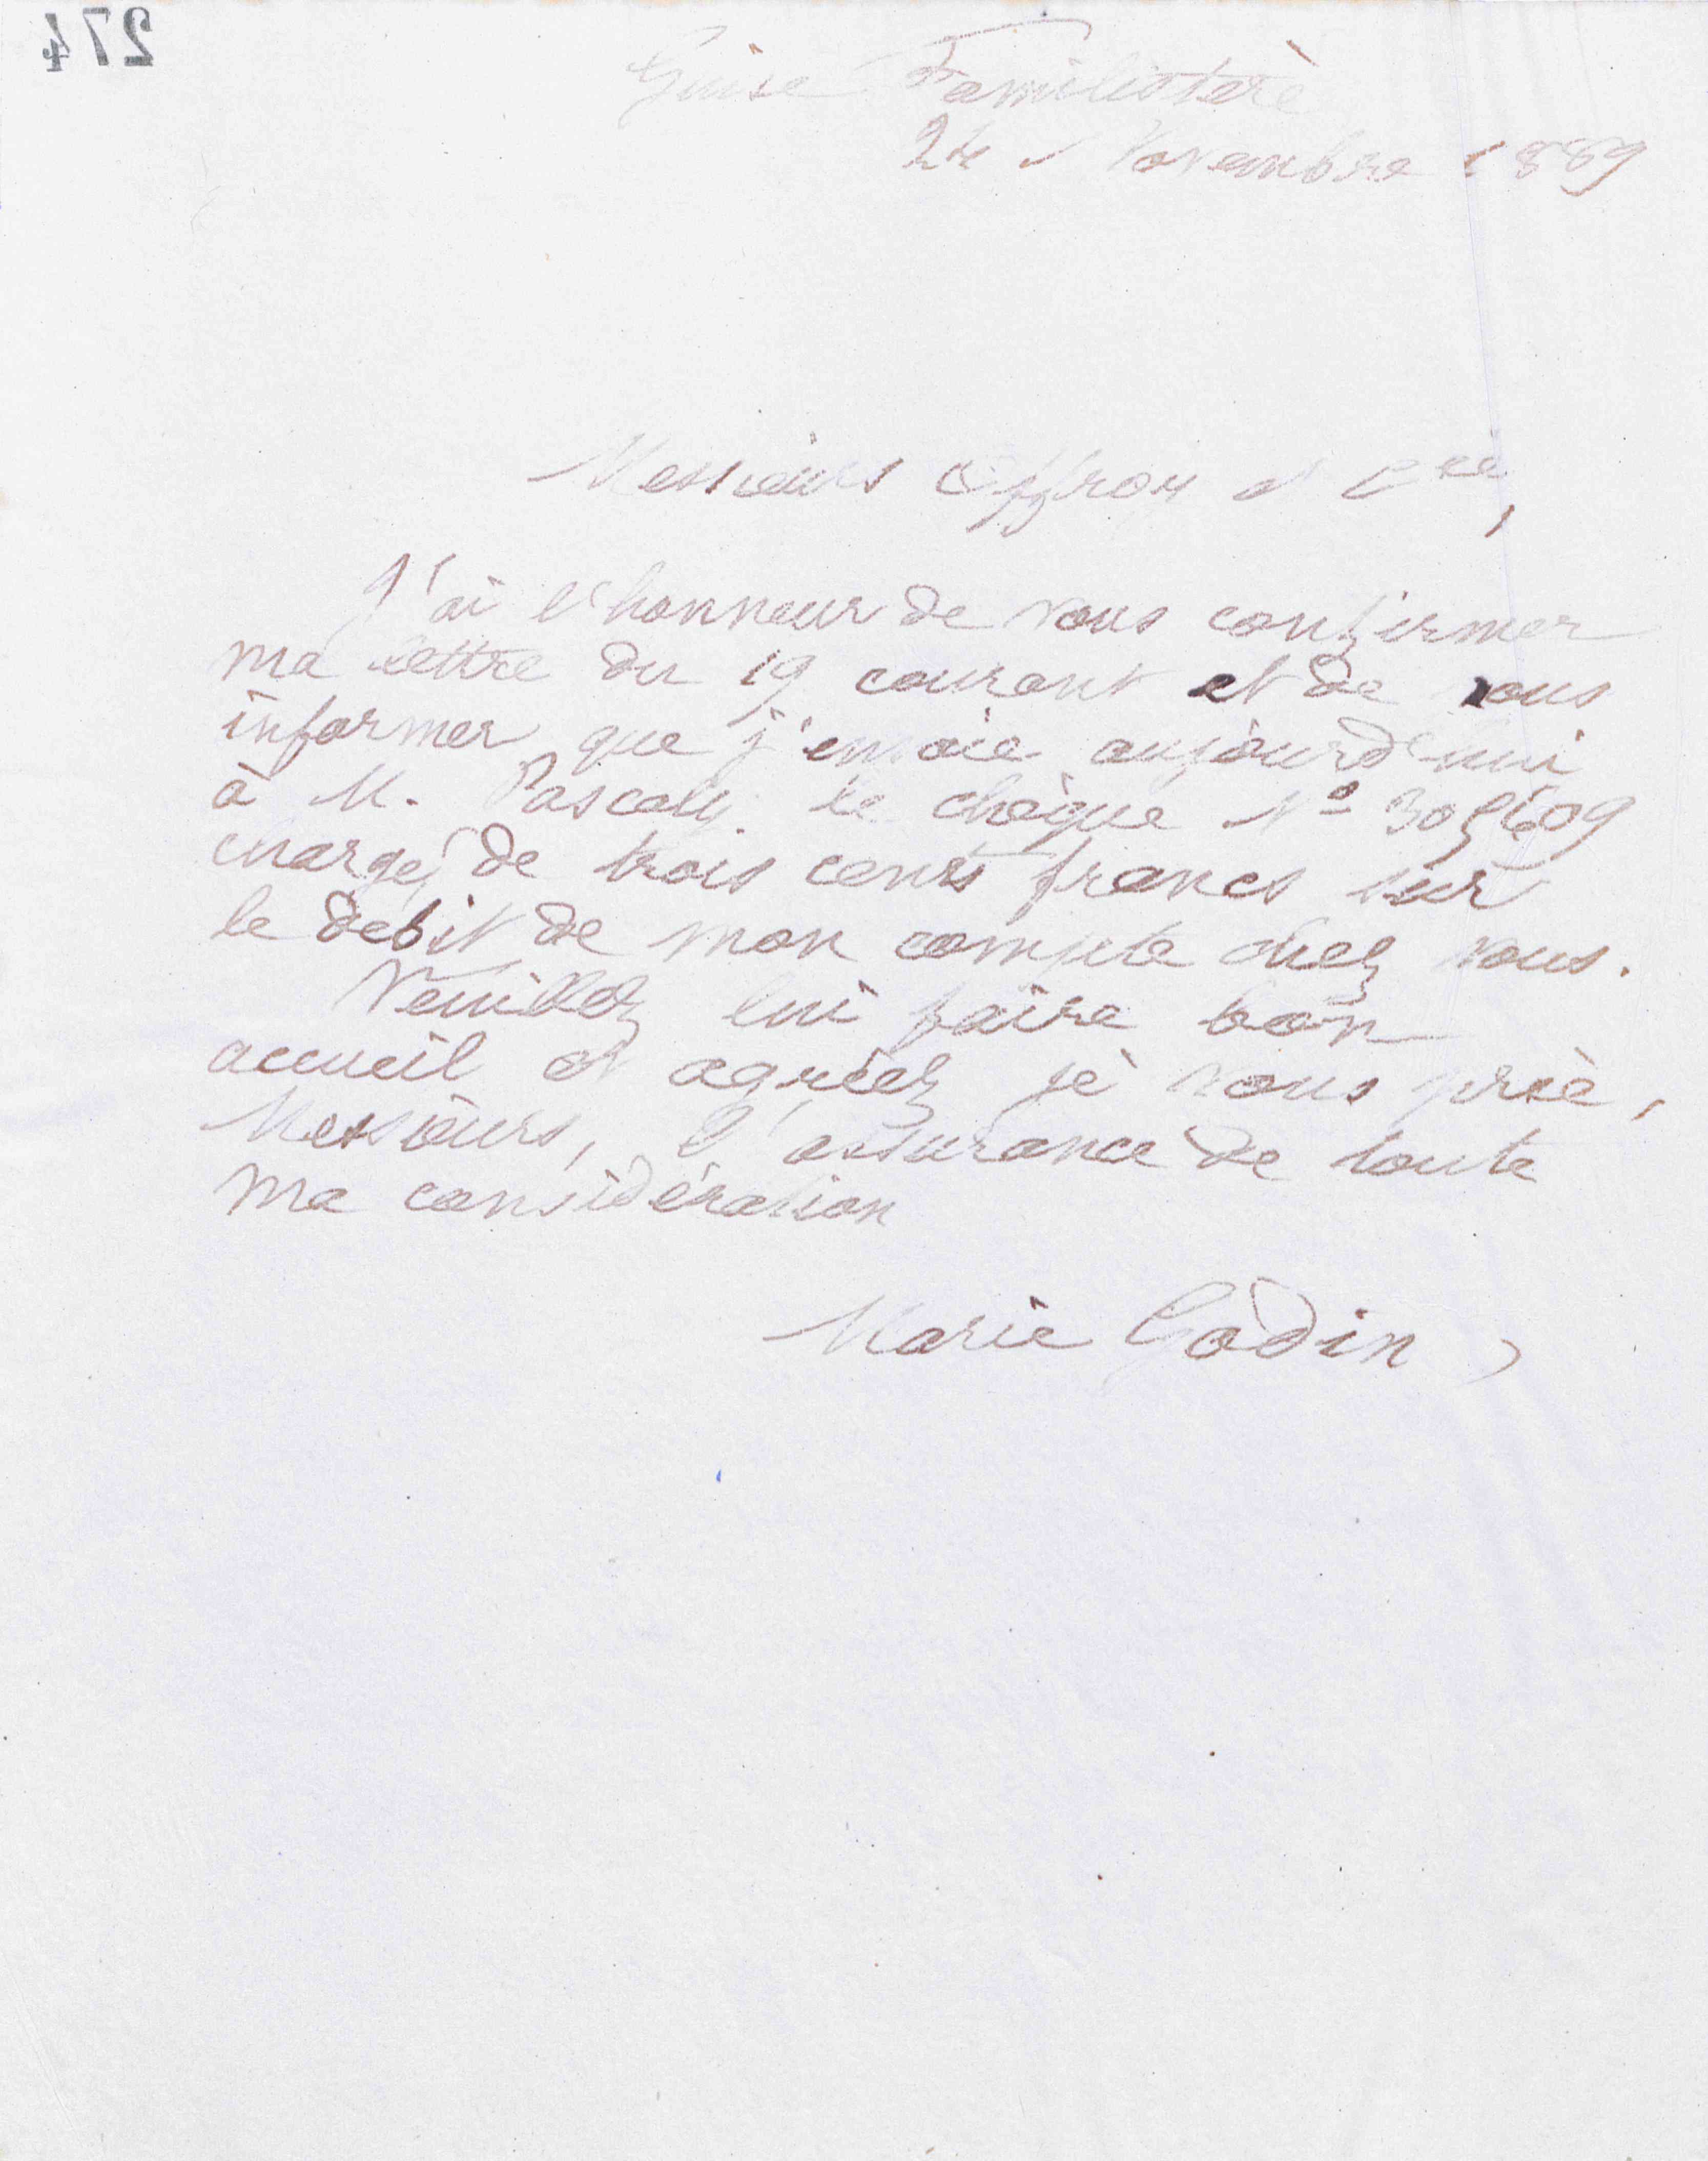 274
Guise Familistère
24 Novembre 1889
Messieurs Offroy et Cie,
J'ai l'honneur de vous confirmer
ma lettre du 19 courant et de vous
informer que j'envoie aujourd'hui
à M. Pascaly le chèque No
chargé de trois cents francs sur
le débit de mon compte chez vous.
Veuillez lui faire bon
accueil et agréez je vous prie,
Messieurs, l'assurance de toute
ma considération
Marie Godin